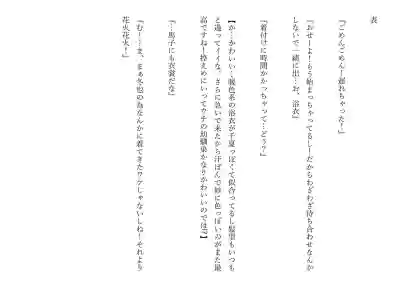 表
『ごめんごめん！遅れちゃった！』
『おせーよ！もう始まっちゃってるし！だからわざわざ待ち合わせなんか
しないで一緒に出…お、浴衣』
『着付けに時間かかっちゃって…どう？』
【か…かわいい…暖色系の浴衣が千夏っぽくて似合ってるし髪型もいつも
と違ってイイな。さらに急いで来たから汗ばんで妙に色っぽいのがまた最
高ですね！控えめにいってウチの幼馴染かなりかわいいのでは⁉】
『…馬子にも衣裳だな』
『むー…ま、まぁ冬旭の為なんかに着てきたワケじゃないしね！それより
花火花火！』